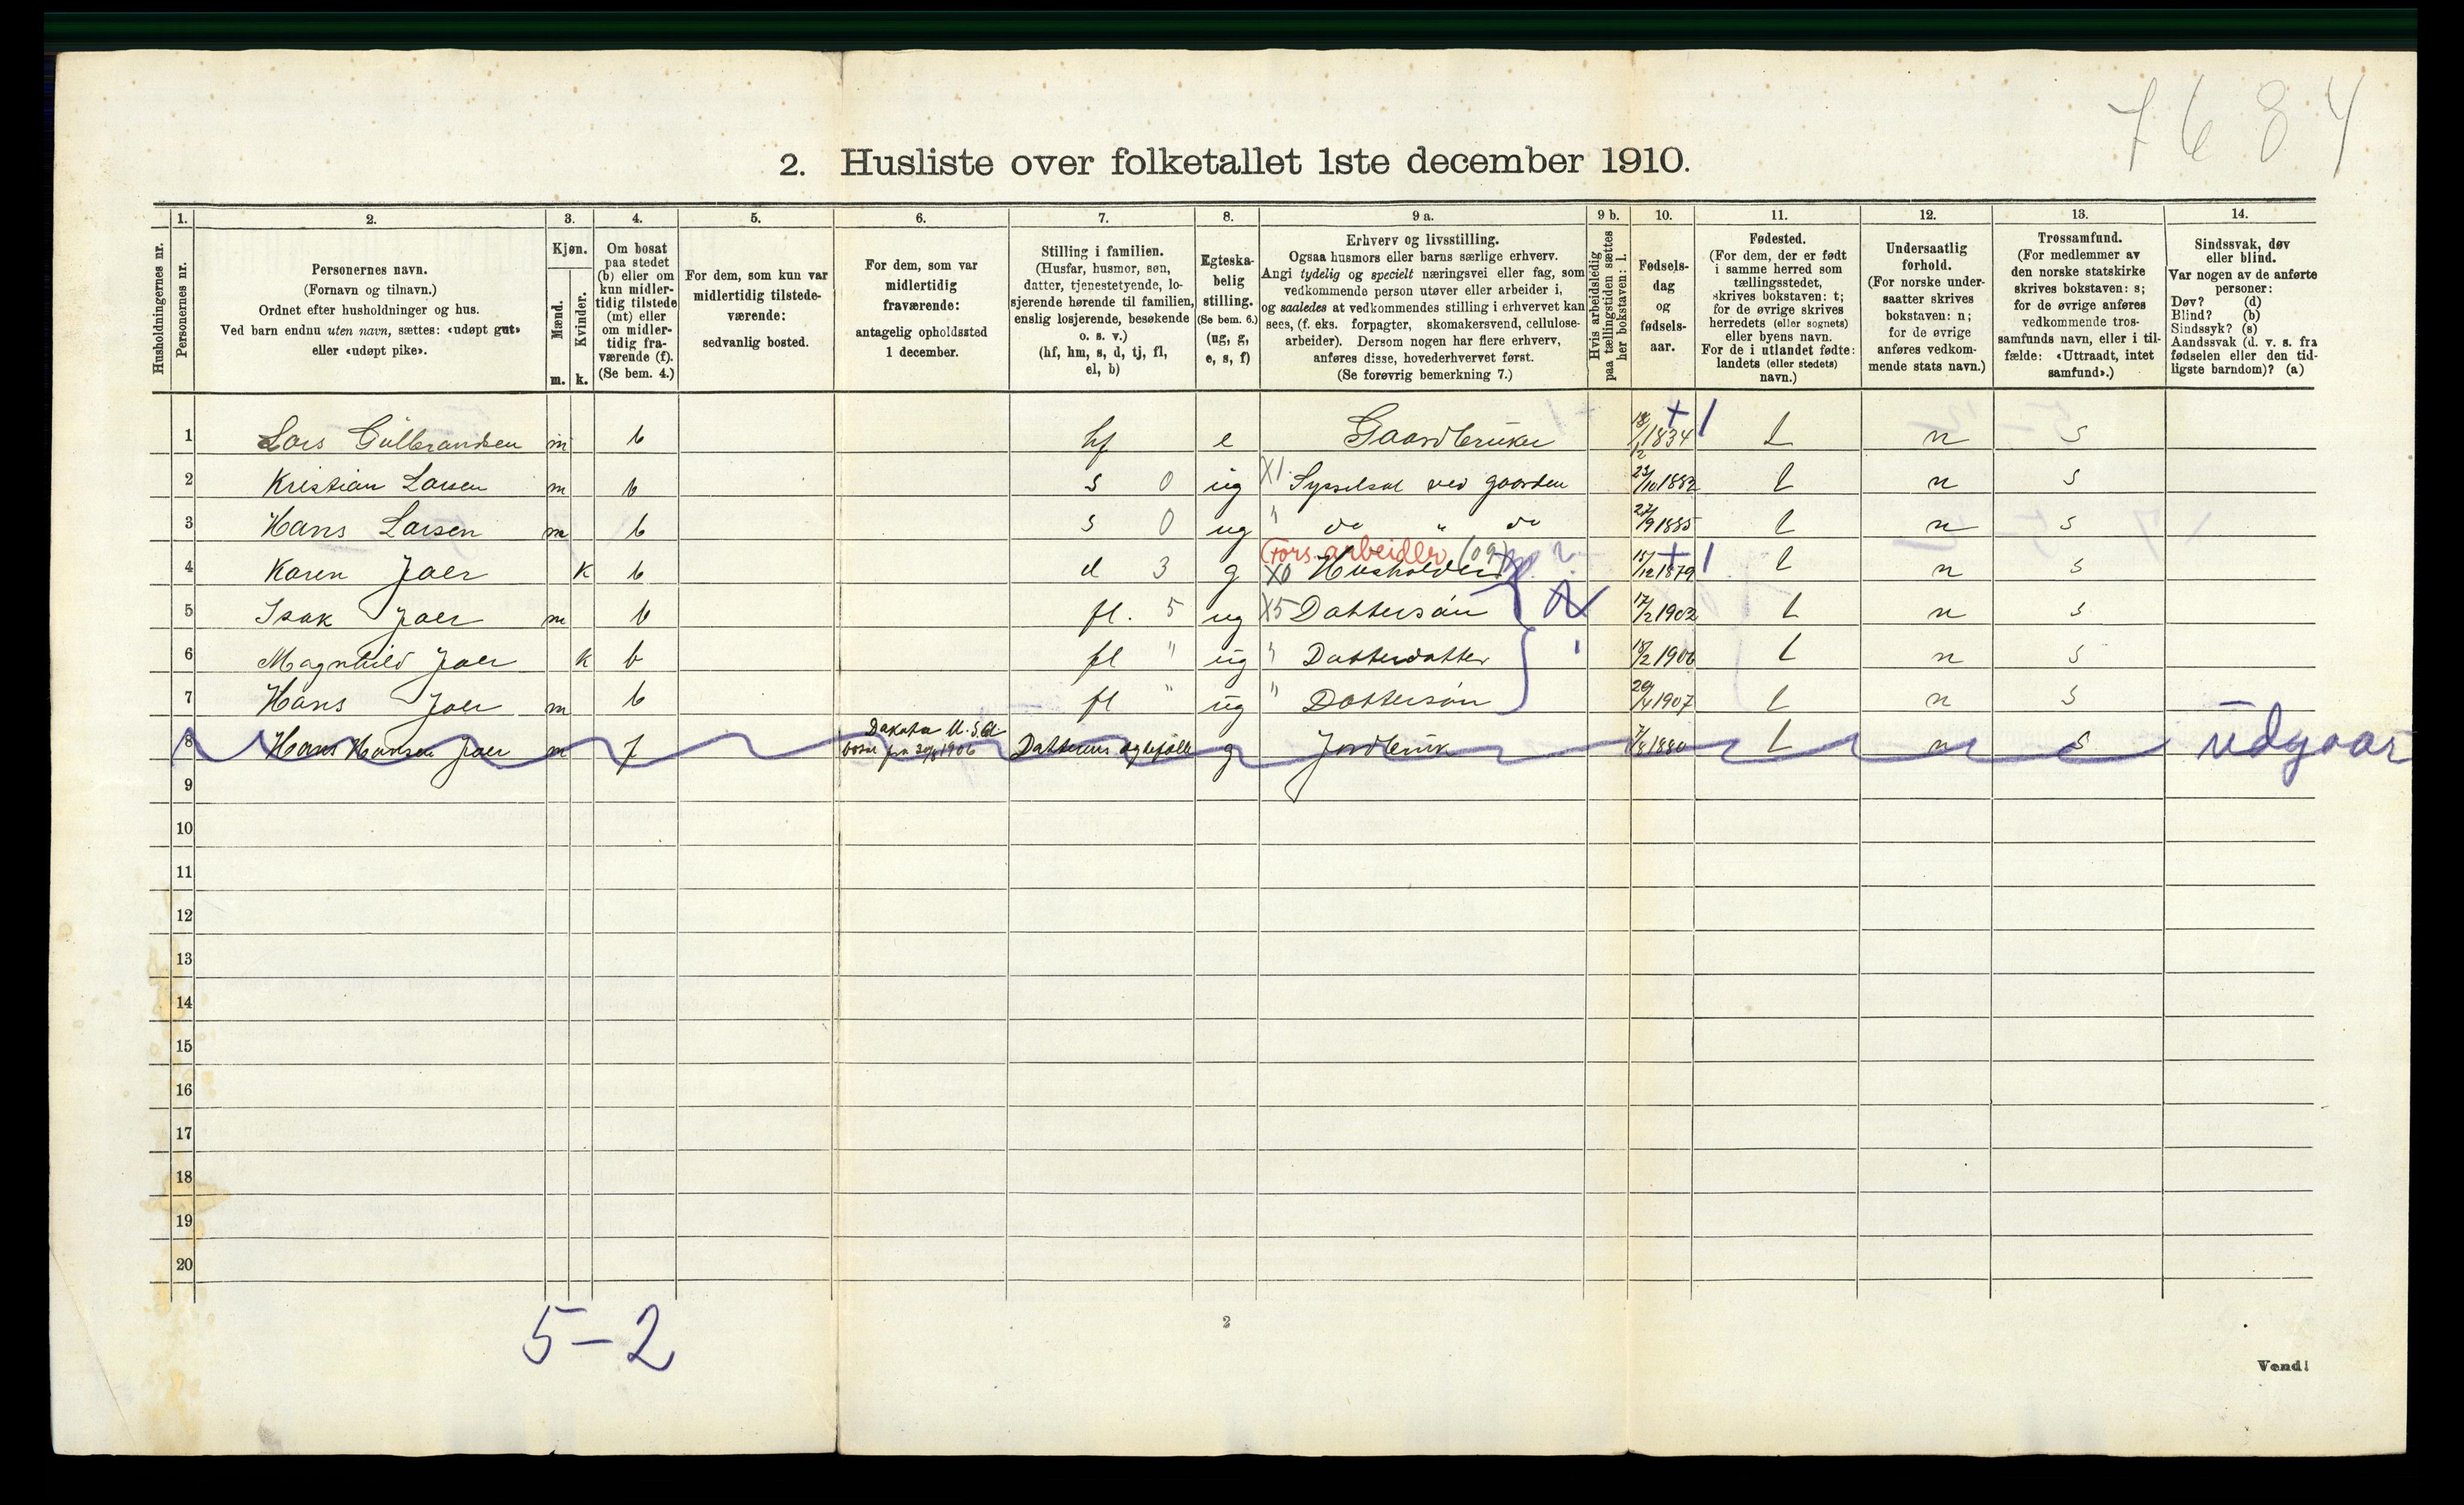 7684
2. Husliste over folketallet 1ste december 1910.
Husholdningernes nr.
1. Personernes nr.
2. Personernes navn.
(Fornavn og tilnavn.)
Ordnet efter husholdninger og hus.
Ved barn endnu uten navn, sættes: «udøpt gut»
eller «udøpt pike».
3. Kjøn.
Mænd. m.
Kvinder. k.
4. Om bosat
paa stedet
(b) eller om
kun midler-
tidig tilstede
(mt) eller
om midler-
tidig fra-
værende (f).
(Se bem. 4.)
5. For dem, som kun var
midlertidig tilstede-
værende:
sedvanlig bosted.
6. For dem, som var
midlertidig
fraværende:
antagelig opholdssted
1 december.
7. Stilling i familien.
(Husfar, husmor, søn,
datter, tjenestetyende, lo-
sjerende hørende til familien,
enslig losjerende, besøkende
o. s. v.)
(hf, hm, s, d, tj, fl,
el, b)
8. Egteska-
belig
stilling.
(Se bem. 6.)
(ug, g,
e, s, f)
9 a. Erhverv og livsstilling.
Ogsaa husmors eller barns særlige erhverv.
Angi tydelig og specielt næringsvei eller fag, som
vedkommende person utøver eller arbeider i,
og saaledes at vedkommendes stilling i erhvervet kan
sees, (f. eks. forpagter, skomakersvend, cellulose-
arbeider). Dersom nogen har flere erhverv,
anføres disse, hovederhvervet først.
(Se forøvrig bemerkning 7.)
9 b. Hvis arbeidsledig
paa tællingstiden sættes
her bokstaven: l.
10. Fødsels-
dag
og
fødsels-
aar.
11. Fødested.
(For dem, der er født
i samme herred som
tællingsstedet,
skrives bokstaven: t;
for de øvrige skrives
herredets (eller sognets)
eller byens navn.
For de i utlandet fødte:
landets (eller stedets)
navn.)
12. Undersaatlig
forhold.
(For norske under-
saatter skrives
bokstaven: n;
for de øvrige
anføres vedkom-
mende stats navn.)
13. Trossamfund.
(For medlemmer av
den norske statskirke
skrives bokstaven: s;
for de øvrige anføres
vedkommende tros-
samfunds navn, eller i til-
fælde: «Uttraadt, intet
samfund».)
14. Sindssvak, døv
eller blind.
Var nogen av de anførte
personer:
Døv? (d)
Blind? (b)
Sindssyk? (s)
Aandssvak (d. v. s. fra
fødselen eller den tid-
ligste barndom)? (a)
1 Lars Gulbrandsen m b hf e Gaardbruker 1834 t n s
2 Kristian Larsen m b s 0 ug X1 Sysselsat ved gaarden 23/10 1882 t n s
3 Hans Larsen m b s 0 ug " do " do 27/9 1885 t n s
Fors. arbeider (og)
4 Karen Joer k b d 3 g X0 Husholder 15/12 1879 t n s
5 Isak Joer m b fl. 5 ug X5 Dattersøn 17/2 1902 t n s
6 Magnhild Joer k b fl " ug " Datterdatter 18/2 1906 t n s
7 Hans Joer m b fl " ug " Dattersøn 29/4 1907 t n s
Dakota U.S.A
8 Hans Hansen Joer m f 1906 Datterens g Jordbruk 7/8 1880 t n s udgaar
9
10
11
12
13
14
15
16
17
18
19
20
5-2
2
Vend!